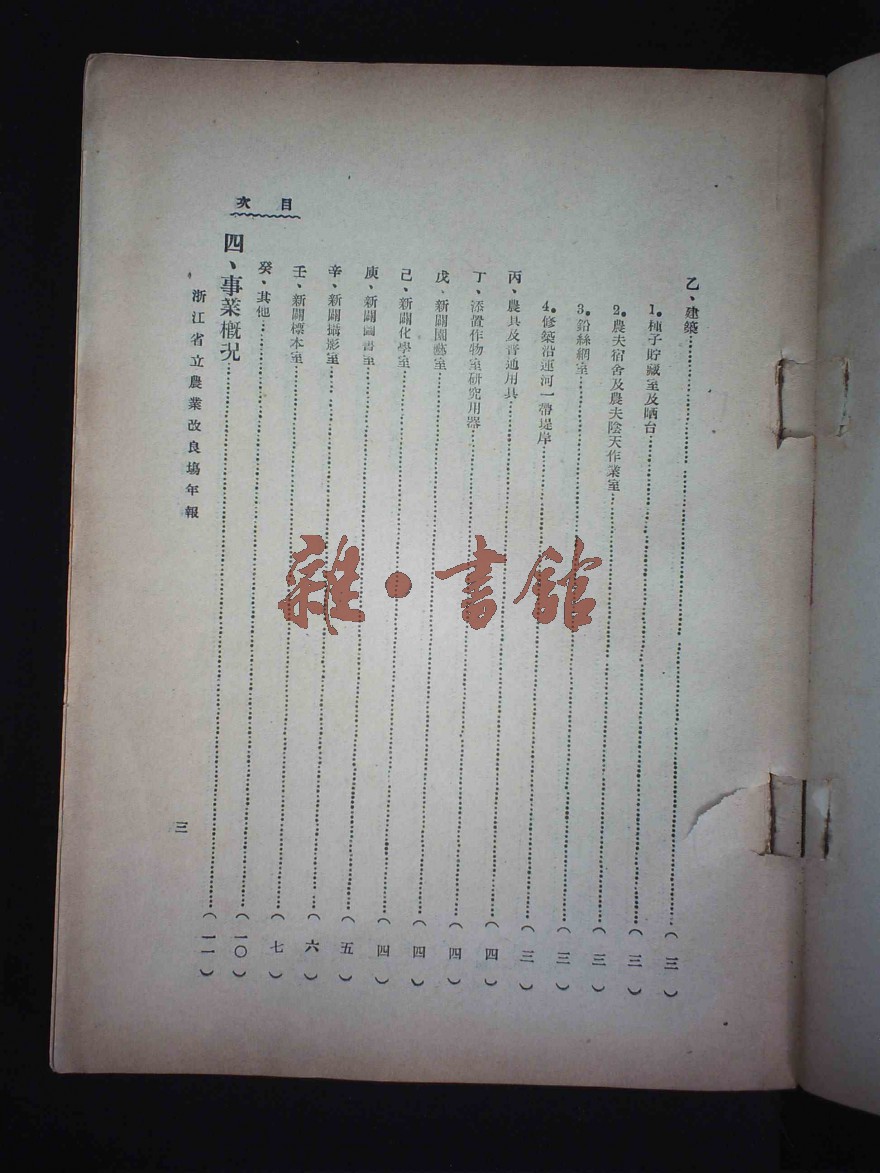 目次
乙、建築……(三)
1.種子貯藏室及晒台……(三)
2.農夫宿舍及農夫陰天作業室……(三)
3.鉛絲網室……(三)
4.修築沿運河一帶堤岸……(三)
丙、農具及普通用具……(四)
丁、添置作物室研究用器……(四)
戊、新闢園藝室……(四)
己、新闢化學室……(四)
庚、新闢圖書室……(五)
辛、新闢攝影室……(六)
壬、新闢標本室……(七)
癸、其他……(一〇)
四、事業概况……(一一)
浙江省立農業改良塲年報
三
雜·書館